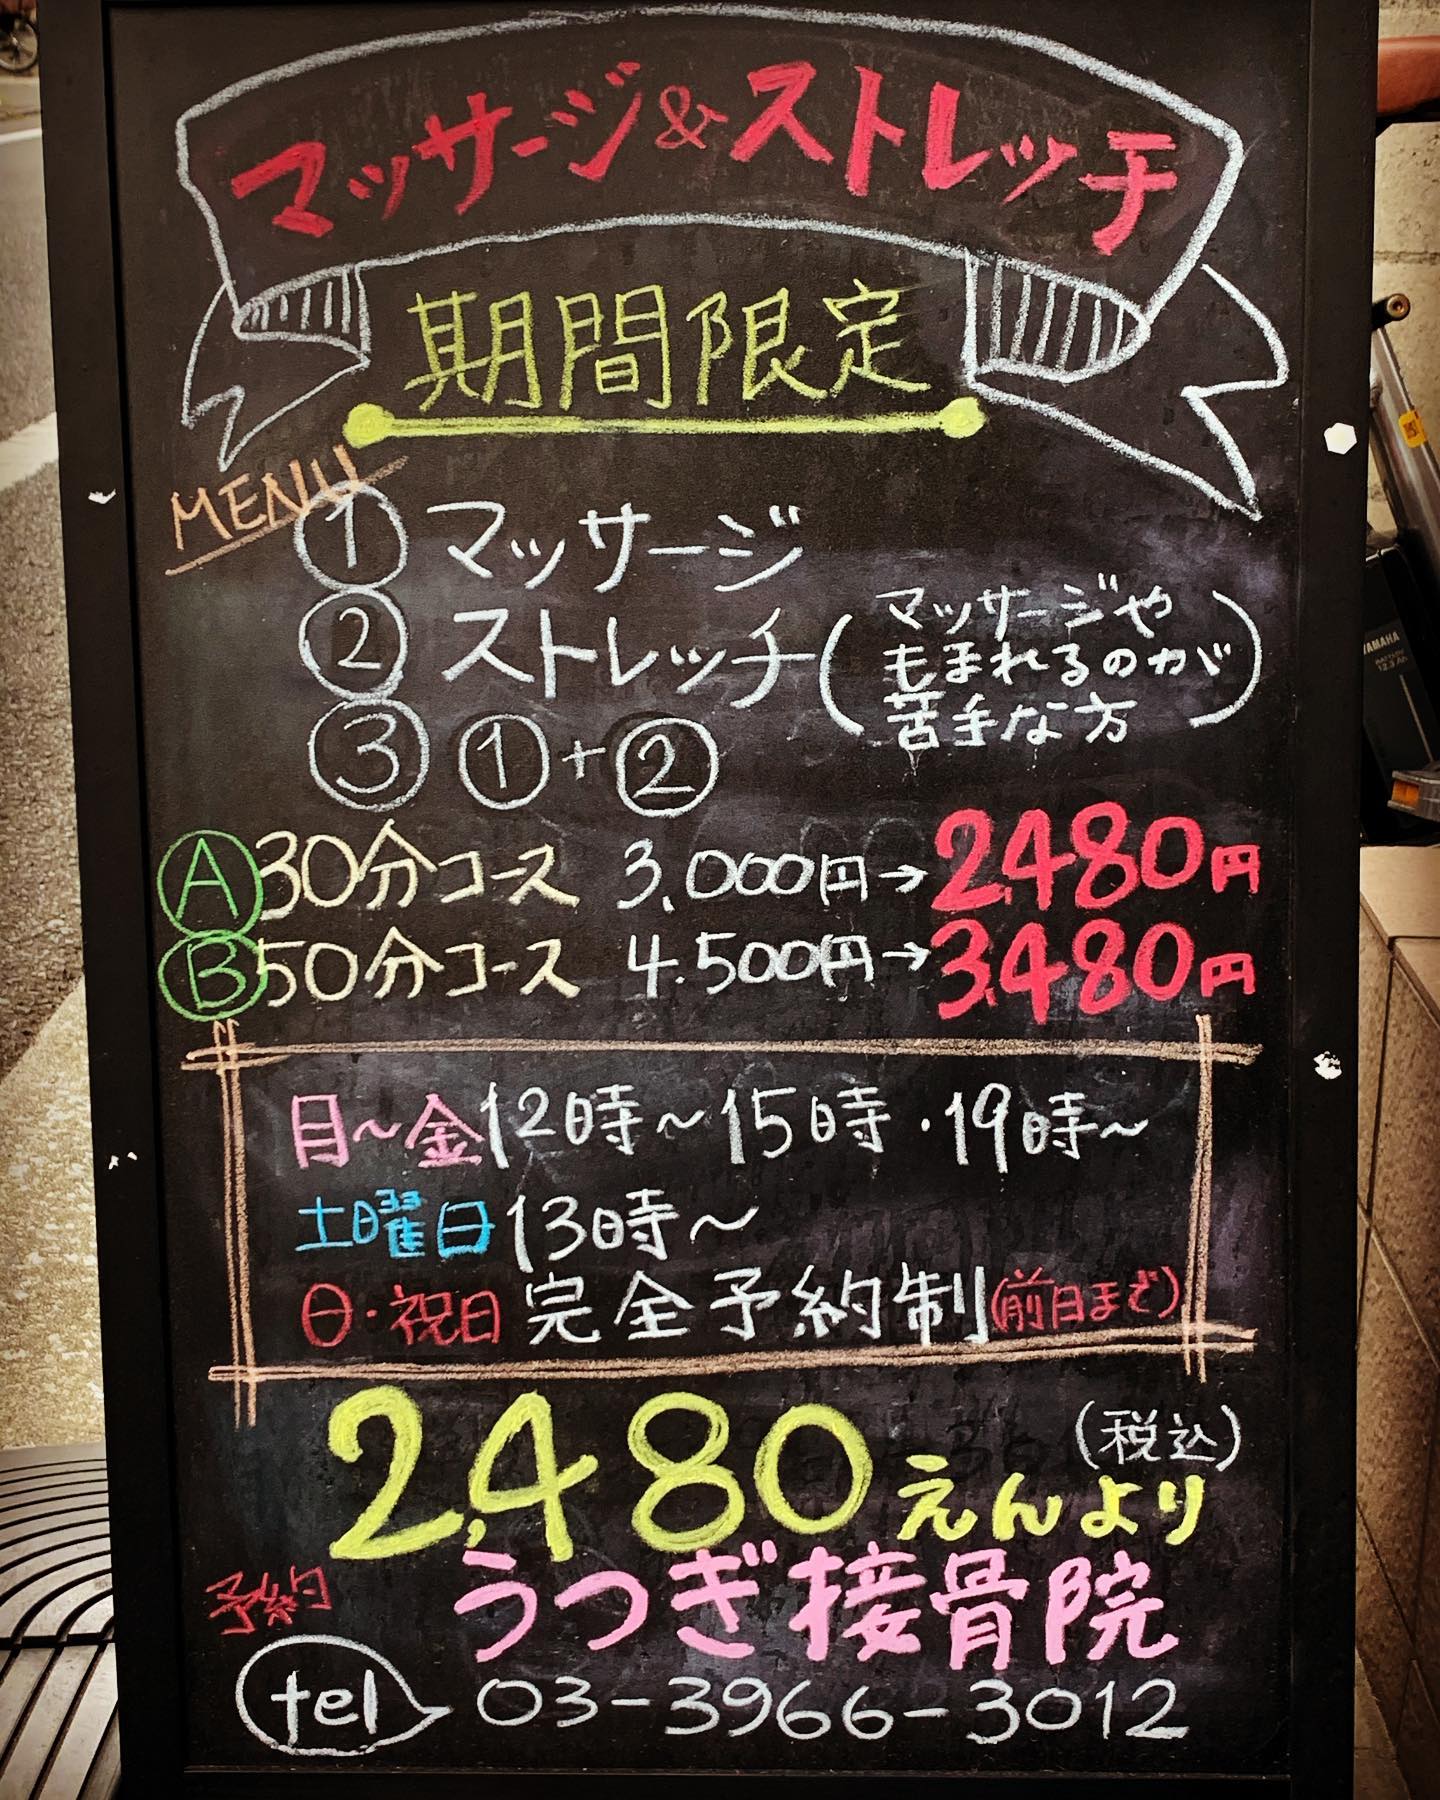 マッサージ&ストレッチ
期間限定
MENU
① マッサージ
② ストレッチ(マッサージや
もまれるのが
苦手な方)
③ ①+②
Ⓐ30分コース 3,000円→2,480円
Ⓑ50分コース 4,500円→3,480円
月～金12時～15時・19時～
土曜日13時～
日・祝日 完全予約制(前日まで)
2,480えんより(税込)
予約
うつぎ接骨院
tel 03-3966-3012
YAMAHA